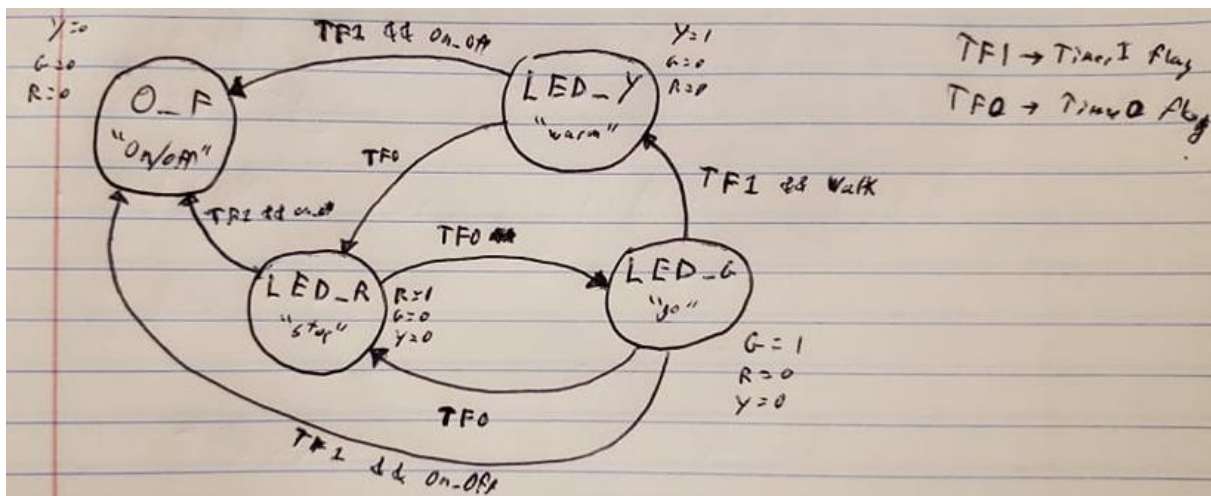 Y=0
G=0
R=0
O_F
"On/off"
TF1 && On_Off
Y=1
G=0
R=0
LED_Y
"warn"
TF1 → Timer1 flag
TF0 → Timer0 flag
TF0
TF1 && Walk
TF1 &&
TF0
LED_R
"stop"
R=1
G=0
Y=0
LED_G
"go"
G=1
R=0
Y=0
TF0
TF1 && On_Off